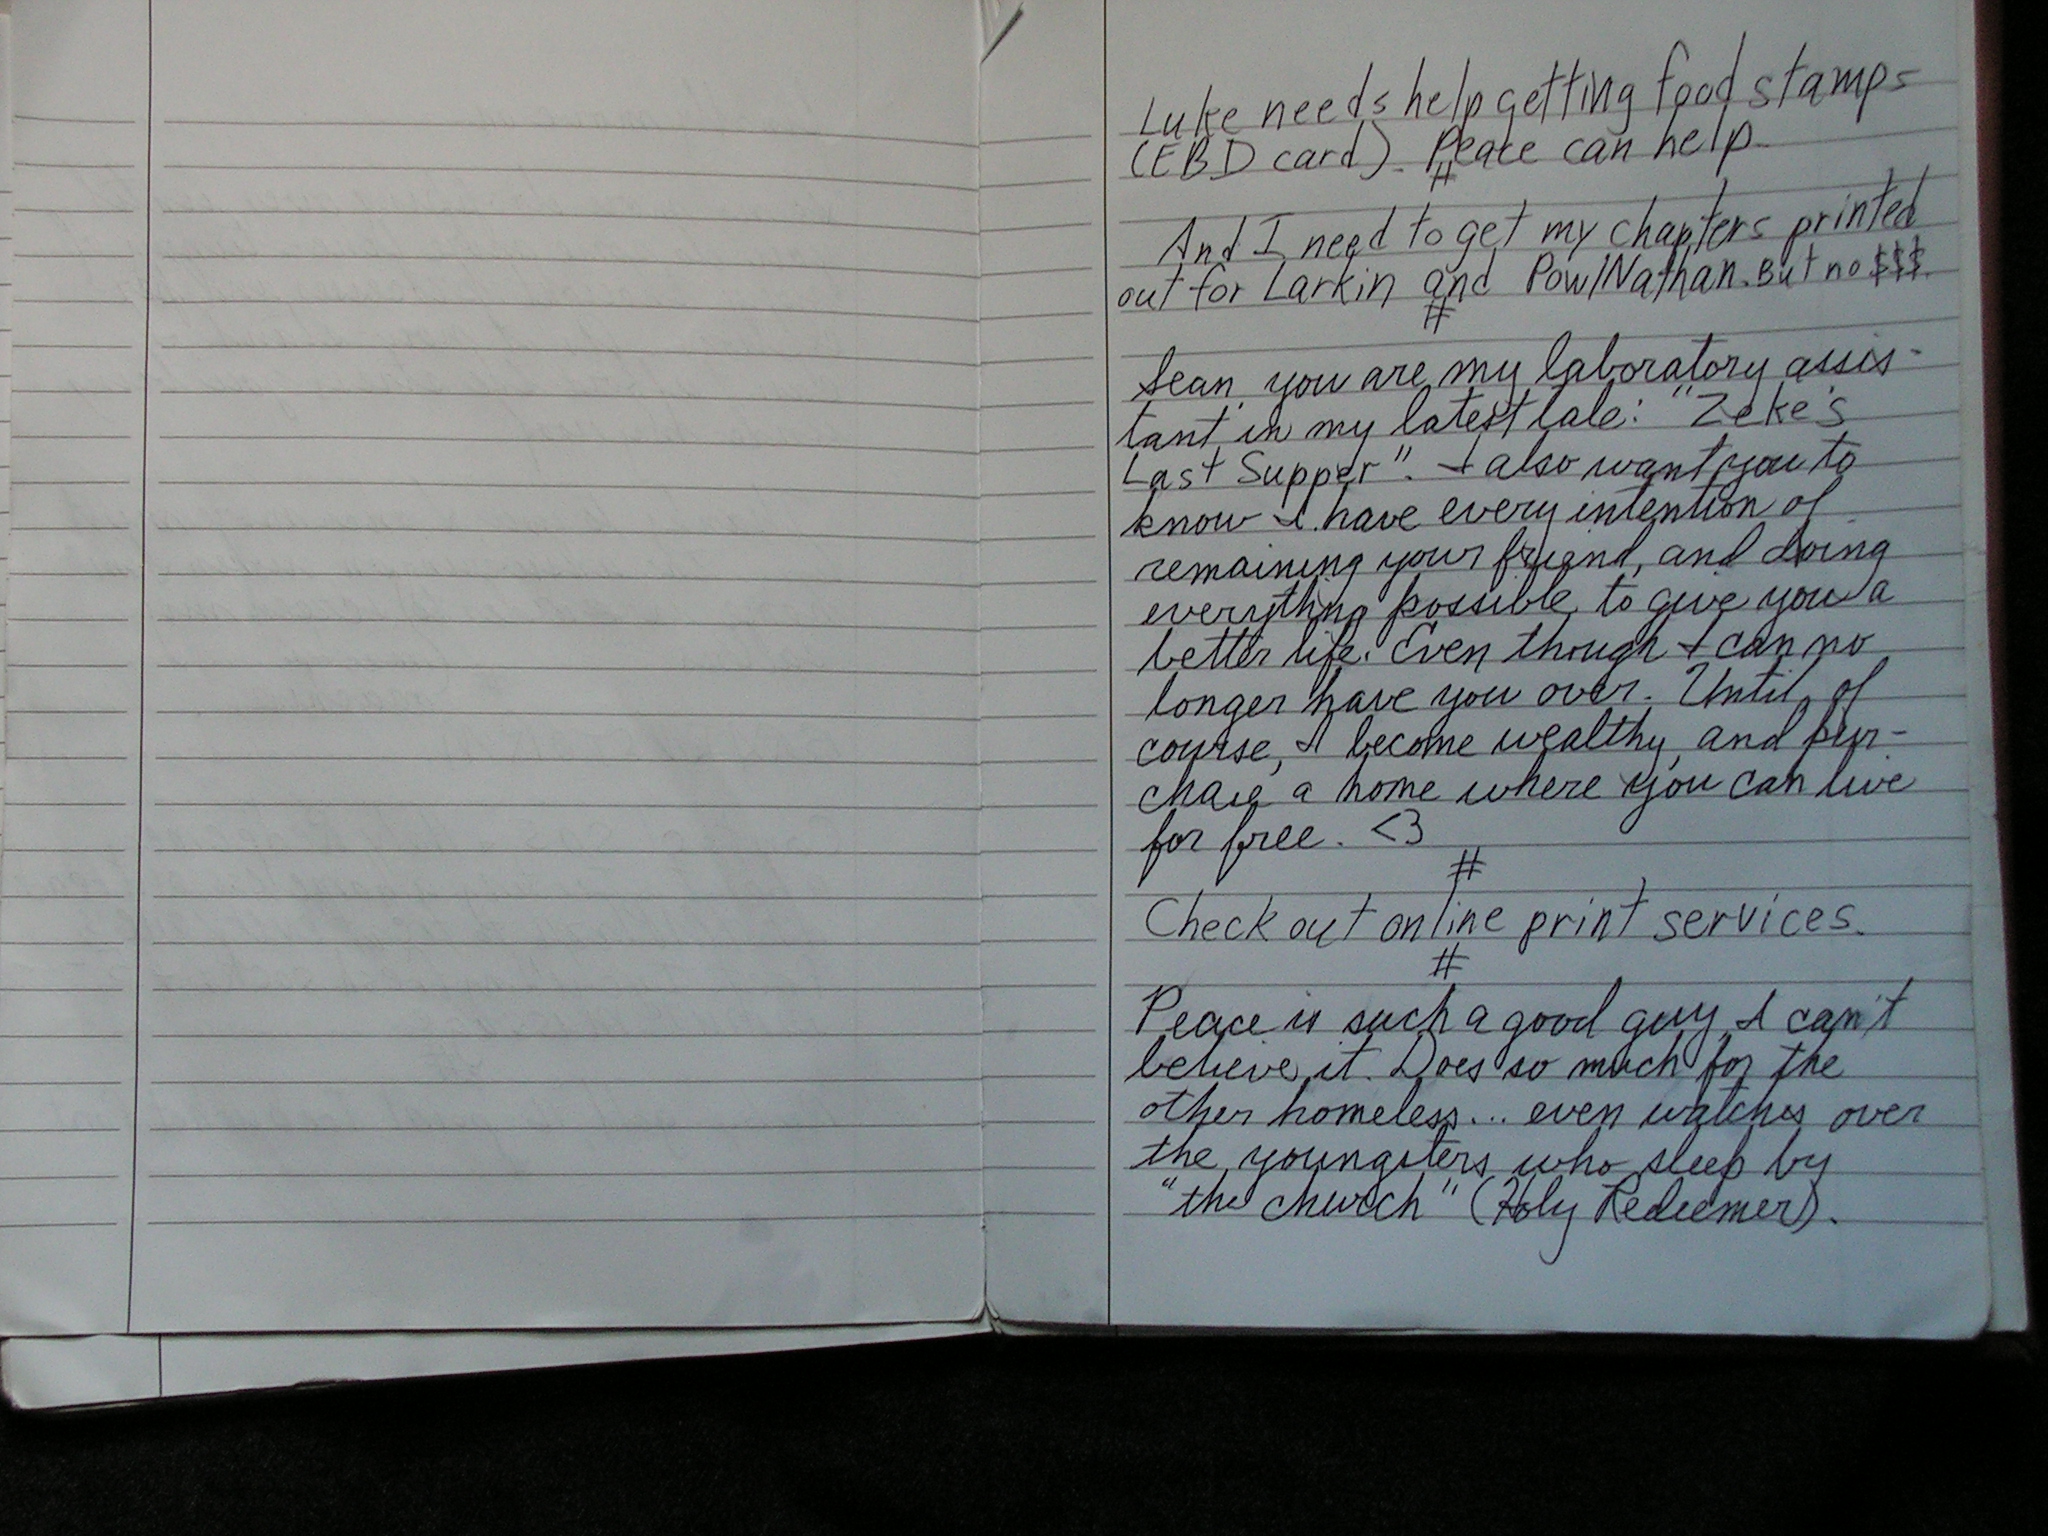 Luke needs help getting food stamps
(EBD card). Peace can help.
#
And I need to get my chapters printed
out for Larkin and Pow/Nathan. But no $$$.
#
Sean, you are my laboratory assis-
tant in my latest tale: "Zeke's
Last Supper". I also want you to
know I have every intention of
remaining your friend, and doing
everything possible to give you a
better life. Even though I can no
longer have you over. Until, of
course, I become wealthy, and pur-
chase a home where you can live
for free. <3
#
Check out online print services.
#
Peace is such a good guy I can't
believe it. Does so much for the
other homeless... even watches over
the youngsters who sleep by
"the church" (Holy Redeemer).